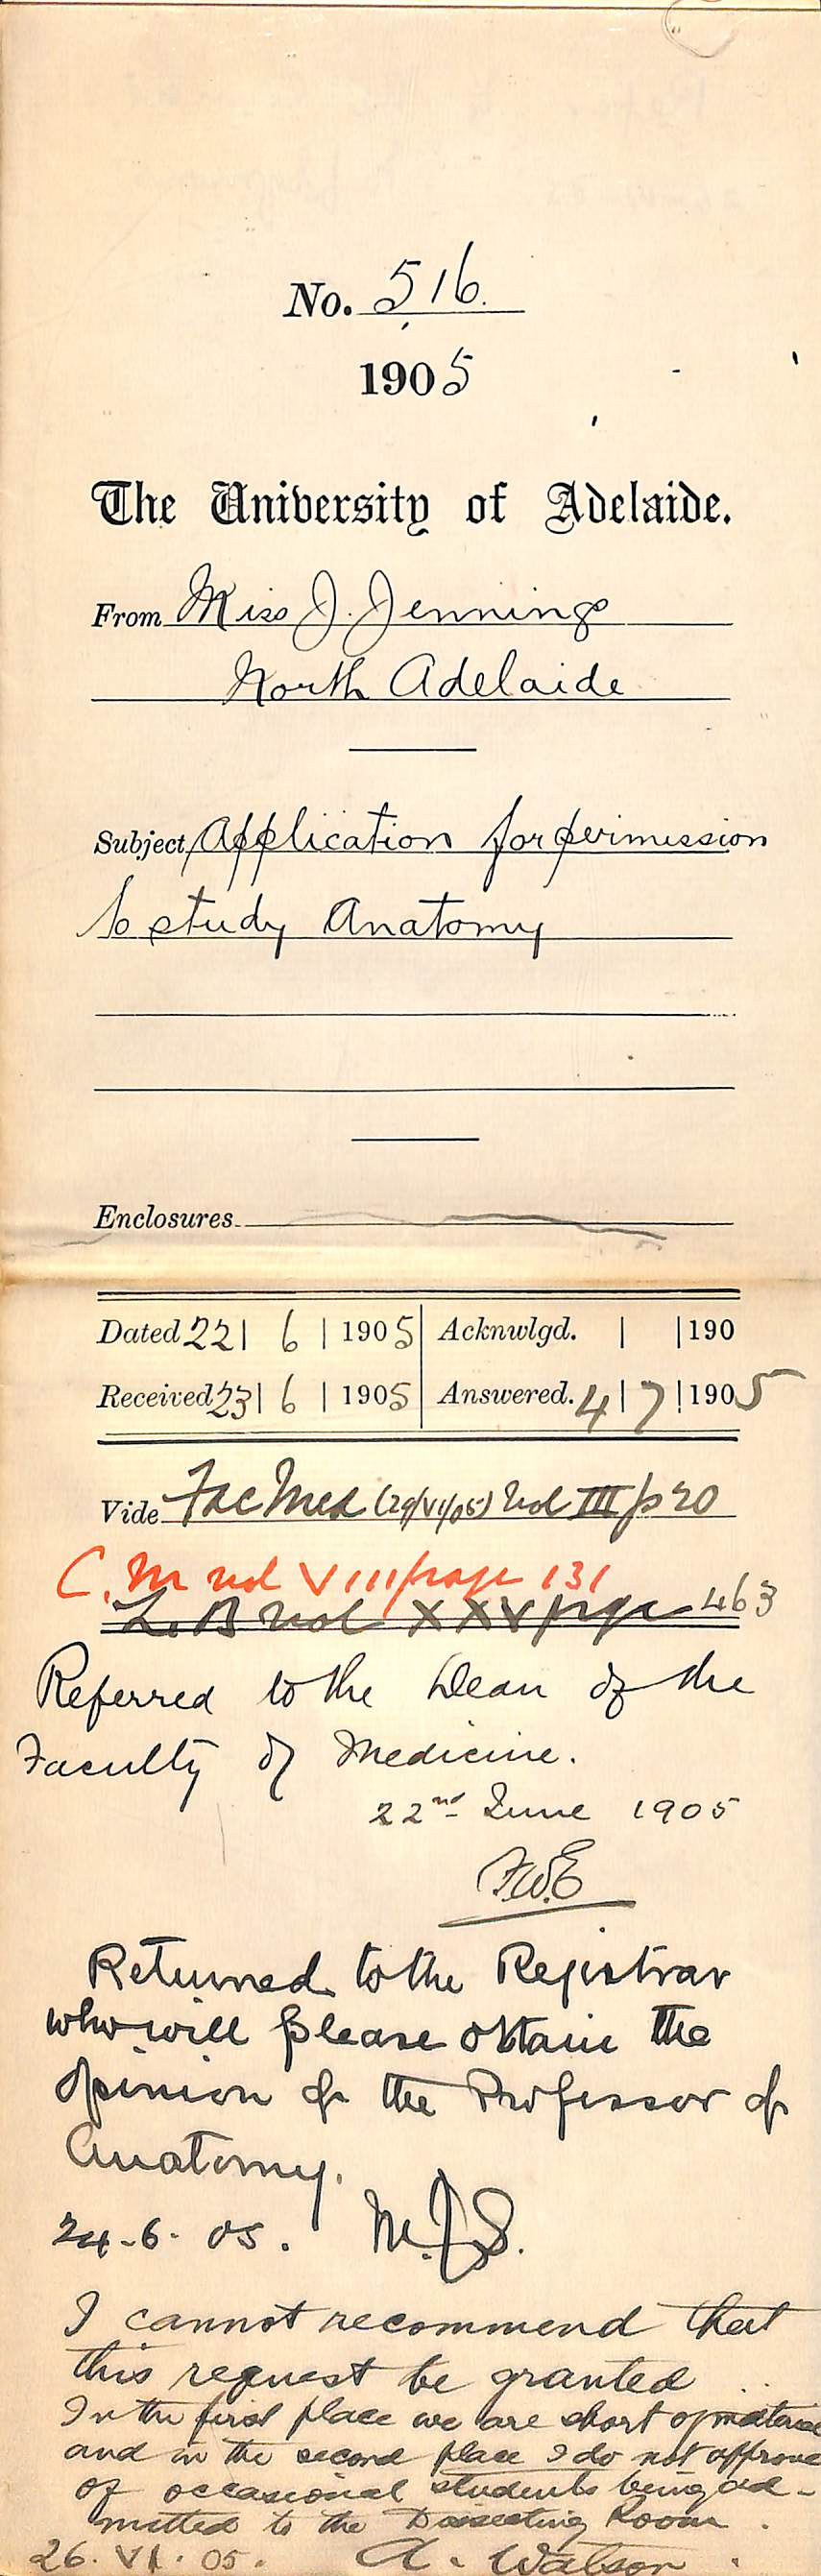 No. 516.
1905
The University of Adelaide.
From Miss J. Jennings
North Adelaide
Subject Application for permission
to study Anatomy
Enclosures
Dated 22 | 6 | 1905 | Acknwlgd. | | 190
Received 23 | 6 | 1905 | Answered. 4 | 7 | 1905
Vide Fac Med (29/VI/05) Vol III p 20
C. M vol VIII page 131
L. B vol XXV page 463
Referred to the Dean of the
Faculty of Medicine.
22nd June 1905
F.W.E
Returned to the Registrar
who will please obtain the
opinion of the Professor of
Anatomy.
24-6-05. M.J.S.
I cannot recommend that
this request be granted
In the first place we are short of material
and in the second place I do not approve
of occasional students being ad-
mitted to the Dissecting Room.
26. VI. 05. A. Watson.